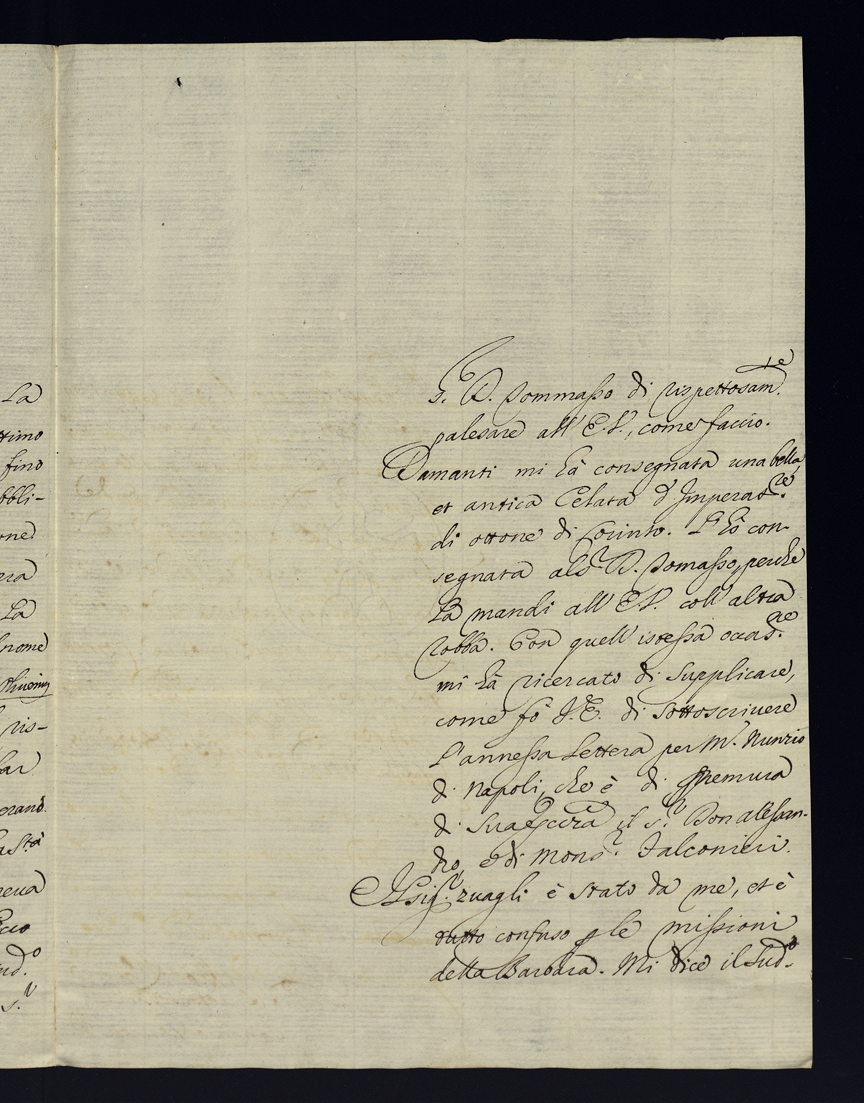 La
ttimo
fino
bbli-
one
era
La
nome
Oliverius
ris-
lar
erand.
asta
neva
Ecco
sud.º
s.r
S. D. Tommasso di rispettosam.te
palesare all' E.V., come faccio.
Damanti mi hà consegnata una bella,
et antica Celata d'Imperat.re
di ottone di Corinto. L'hò con-
segnata allo D. Tomasso, perche
La mandi all' E.V. coll'altra
robba. Con quell'istessa occas.ne
mi hà ricercato di supplicare,
come fò V.E. di sottoscrivere
l'annessa Lettera per M.r Nunzio
di Napoli, che è di premura
di Sua Ecc.za il s.r Don Alessan-
dro, e di Mons.r Falconieri.
Il sig.r Zuagli è stato da me, et è
tutto confuso p le missioni
della Barbaria. Mi dice il sud.º